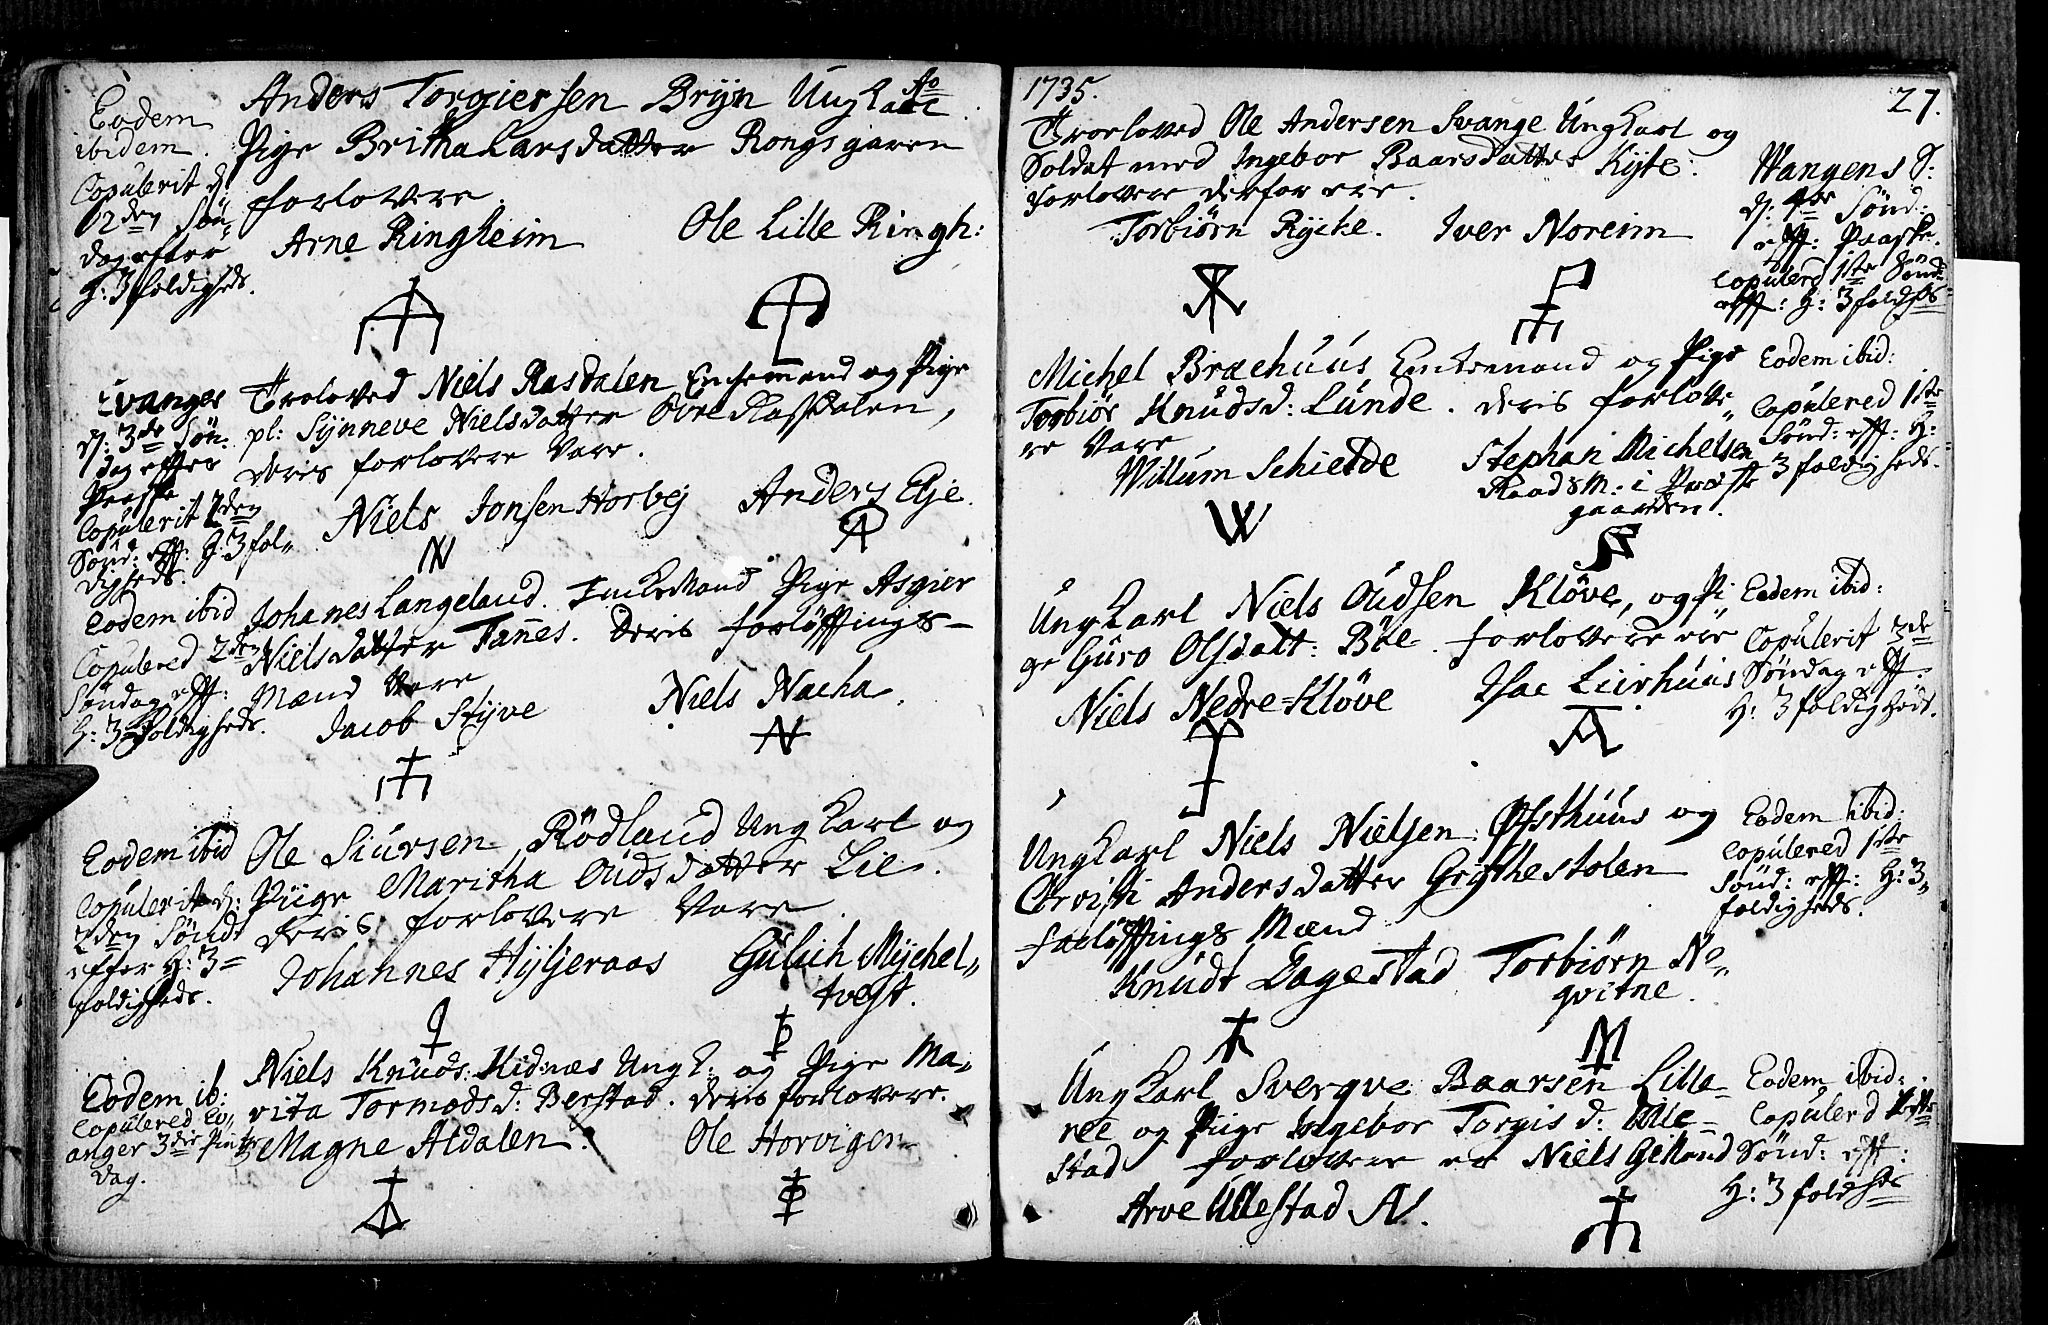 Anders Torgiersen Bryn Ungkarl
Ao
Eodem
ibidem.
Pige Britha Larsdatter Rongsgaren
Copulerit d:
2den Søn„
dag efter
H: 3foldigheds.
forlovere.
Arne Ringheim
Ole Lille Ringh:
Evanger
d: 3de Søn„
dag efter
Paaske
Copulerit 2den
Sønd: eff: H: 3fol„
digheds.
Troloved Niels Rasdalen Enchemand og Pige
pl: Synneve Nielsdatter Øvre Rasdalen,
deris forlovere Vare.
Niels Jonsen Horvej
Anders Elje.
Eodem ibid
Copulered 2den
Søndag eff:
H: 3foldigheds.
Johanes Langeland. Enkemand Pige Asgier
Nielsdatter Tañes. Deris forløffings-
Mænd Vare
Jacob Styve
Niels Nacha.
Eodem ibid
Copulerit d:
2den Sønd:
efter H: 3=
foldigheds.
Ole Siursen Rødland Ungkarl og
Piige Maritha Oudsdatter Lie.
deris forlovere Vare.
Johannes Hyljeraas
Gulich Mychel„
tvejt.
Eodem ib:
Copulered Ev„
anger 3die Pintz
dag.
Niels Knuds: Kidnæs Ungk: og Pige Ma„
rita Tormodsd: Berstad. deris forlovere.
Magne Aldalen.
Ole Horvigen
1735.
27.
Troloved Ole Andersen Svange Ungkarl og
Soldat med Ingebor Baarsdatter Kyte:
Forlovere derfor ere.
Torbiörn Rycke.
Iver Noreim
Wangens S:
d: 4de Sønd:
eff: Paaske.
Copulerd 1ste Sønd:
eff: H: 3foldhds
Michel Bræchuus Enkemand og Pige
Torbiør Knudsd: Lunde. deris forlove„
re Vare
Willum Schielde
Stephan Michelsen
Raads M: i Præste
gaarden.
Eodem ibid:
Copulered 1ste
Sønd: eff: H:
3foldigheds.
Ungkarl Niels Oudsen Kløve, og Pi
ge Guro Olsdatt: Bøe. forlovere ere
Niels Nedre=Kløve
Isac Liirhuus
Eodem ibid:
Copulerit 3de
Søndag eff.
H: 3foldigheds.
Ungkarl Niels Nielsen Opsthuus og
Christi Andersdatter Grythestolen
forløffings Mænd
Knudt Dagestad
Torbiörn No„
qvitne.
Eodem ibid:
Copulered 1ste
Sønd: eff: H: 3„
foldigheds.
Ungkarl Sverqve Baarsen Lille-
ree og Piige Ingebor Torgis d: Ulle-
stad forlovere er Niels Gilland
Arve Ullestad
Eodem ibid:
Copulerd
Sønd: eff:
H: 3foldhds